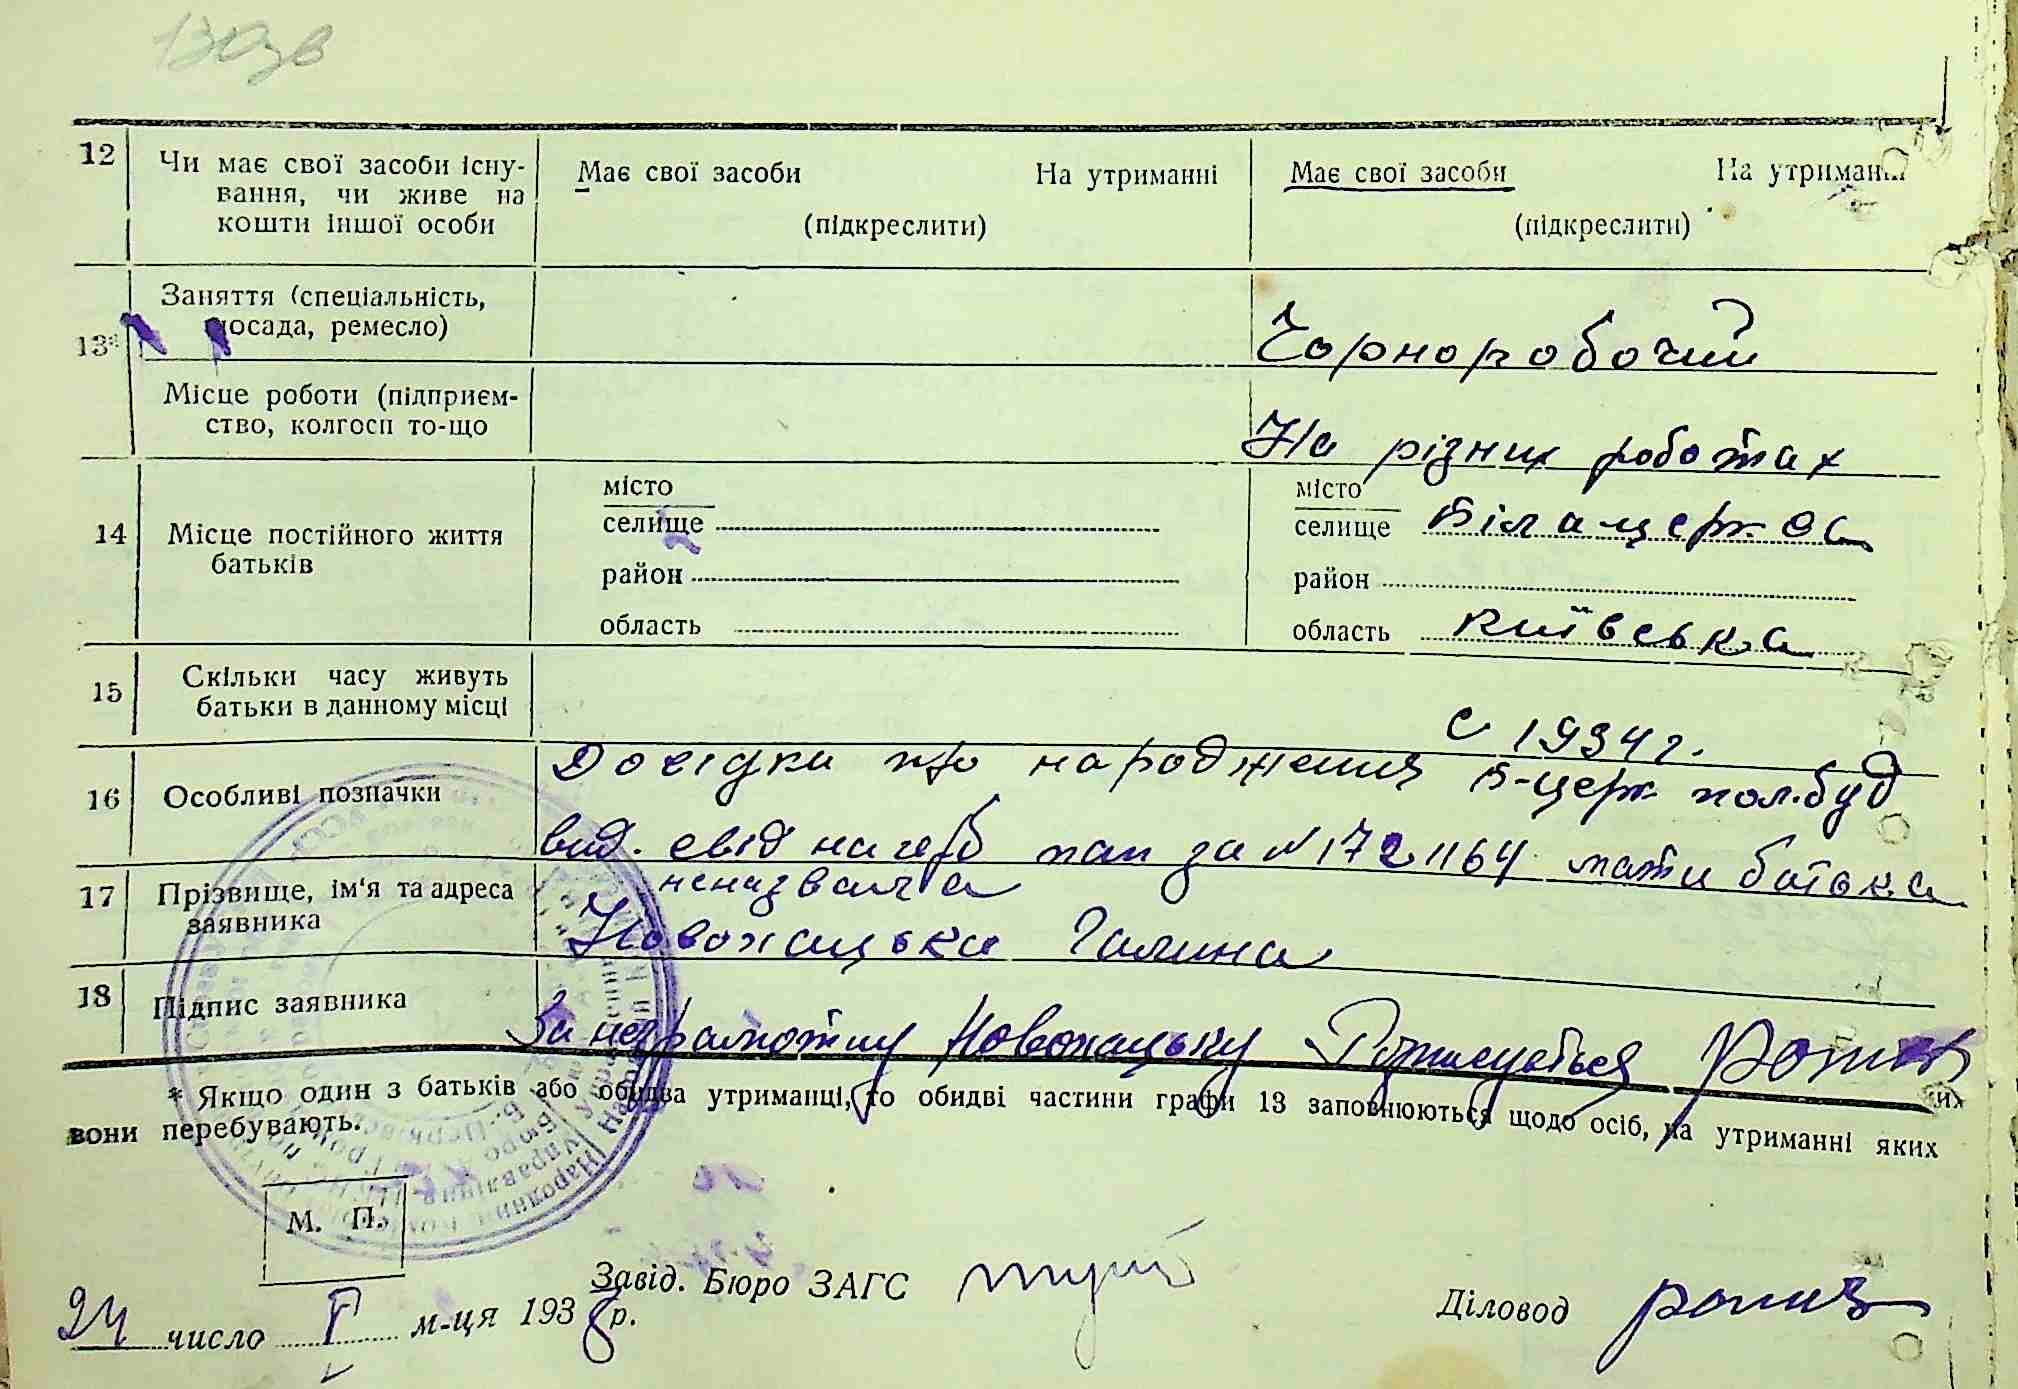 130зв
12 Чи має свої засоби існу- Має свої засоби На утриманні Має свої засоби На утриманні
вання, чи живе на
кошти іншої особи (підкреслити) (підкреслити)
Заняття (спеціальність,
посада, ремесло) Чорноробочий
13*
Місце роботи (підприєм-
ство, колгосп то-що На різних роботах
місто місто
14 Місце постійного життя селище селище Біла церква
батьків район район
область область Київська
15 Скільки часу живуть
батьки в данному місці С 1934 г.
Довідки про народження Б-церк пол.буд
16 Особливі позначки
вид. свід на герб пап за N 1721164 мати батька
неназвала
17 Прізвище, ім'я та адреса
заявника Новохацька Галина
18 Підпис заявника За неграмотну Новохацьку Розписується
* Якщо один з батьків або обидва утриманці, то обидві частини графи 13 заповнюються щодо осіб, на утриманні яких
вони перебувають.
М. П.
Завід. Бюро ЗАГС
24 число V м-ця 1938 р. Діловод